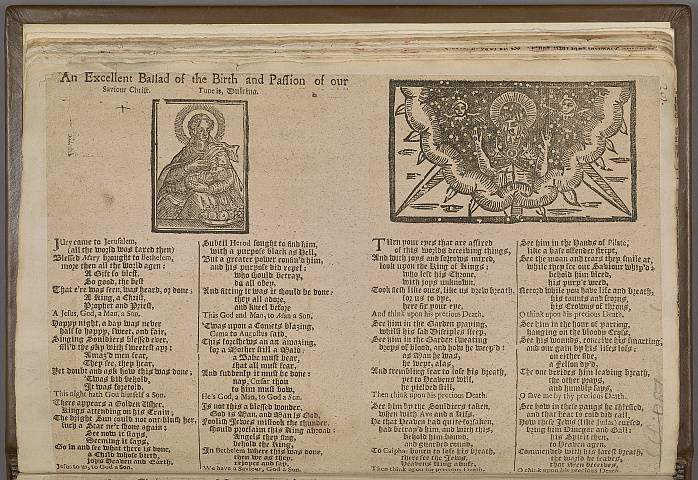 An Excellent Ballad of the Birth and Passion of our
Saviour Christ. Tune is, Dulcina.
JUry came to Jerusalem,
(all the world was taxed then)
Blessed Mary brought to Bethelem,
more then all the world agen:
A Gift so blest,
So good, the best
That e're was seen, was heard, or done;
A King, a Christ,
Prophet and Priest,
A Jesus, God, a Man, a Son.
Happy night, a day was never
half so happy, sweet, and fair,
Singing Souldiers blessed ever,
fill'd the sky with sweetest ayr:
Amaz'd men fear,
They see, they hear,
Yet doubt and ask how this was done;
'Twas bid behold,
It was foretold,
This night hath God himself a Son.
There appears a Golden Usher,
Kings attending on his Train;
The bright Sun could not out-blush her,
such a Star ne'r shone again:
See now it stays,
Seeming it says,
Go in and see what there is done,
a Child whose birth,
joyns Heaven and Earth,
Jesus to us, to God a Son.
Subtil Herod sought to find him,
with a purpose black as Hell,
But a greater power confin'd him,
and his purpose did repel:
who should betray,
do all obey,
And fitting it was it should be done:
they all adore,
and kneel before
This God and Man, to Adam a Son.
'Twas upon a Comets blazing,
Cuma to Augustus said,
This foreshews an an amazing,
for a Mother still a Maid:
a Babe must bear,
that all must fear,
And suddenly it must be done:
nay, Cæsar thou
to him must bow,
He's God, a Man, to God a Son.
Is not this a blessed wonder,
God is Man, and Man is God,
Foolish Jewes mistook the thunder,
should proclaim this King abroad:
Angels they sing,
behold the King,
In Bethelem where this was done,
then we as they,
rejoyce and say,
We have a Saviour, God a Son.
TUrn your eyes that are affixed
of this worlds deceiving things,
And with joys and sorrows mixed,
look upon the King of Kings;
who left his Throne,
with joys unknown,
Took flesh like ours, like us drew breath,
for us to dye,
here fix your eye,
And think upon his precious Death.
See him in the Garden praying,
whilst his sad Disciples sleep,
See him in the Garden sweating
drops of blood, and how he weep'd:
as Man he was,
he wept, alas,
And trembling fear to lose his breath,
yet to Heavens will,
he yielded still,
Then think upon his precious Death.
See him by the Souldiers taken,
when with Ave and a kiss,
He that Heaven had quite forsaken,
had betray'd him, and with this,
behold him bound,
and guarded round,
To Caiphas bourn to lose his breath,
there see the Jews,
Heavens King abuse,
Then think upon his precious Death.
See him in the Hands of Pilate,
like a base offender stript,
See the moan and tears they smile at,
while they see our Saviour whip'd:
behold him bleed,
his purpl'e weed,
Record while you have life and breath,
his taunts and scorns,
his Crowns of thorns,
O think upon his precious Death.
See him in the hour of parting,
hanging on the bloody Cross,
See his wounds, conceive his smarting,
and our gain by his lifes loss:
on either side,
a Fellon dy'd,
The one derides him leaving breath,
the other prays,
and humbly says,
O save me by thy precious Death.
See how in these pangs he thirsted,
and that heat to cool did call,
How these Jewes (like Judas) cursed,
bring him Vinegar and Gall:
his Spirit then,
to Heaven agen,
Commended with his latest breath,
the world he leaves,
that Men deceives,
O think upon his precious Death.